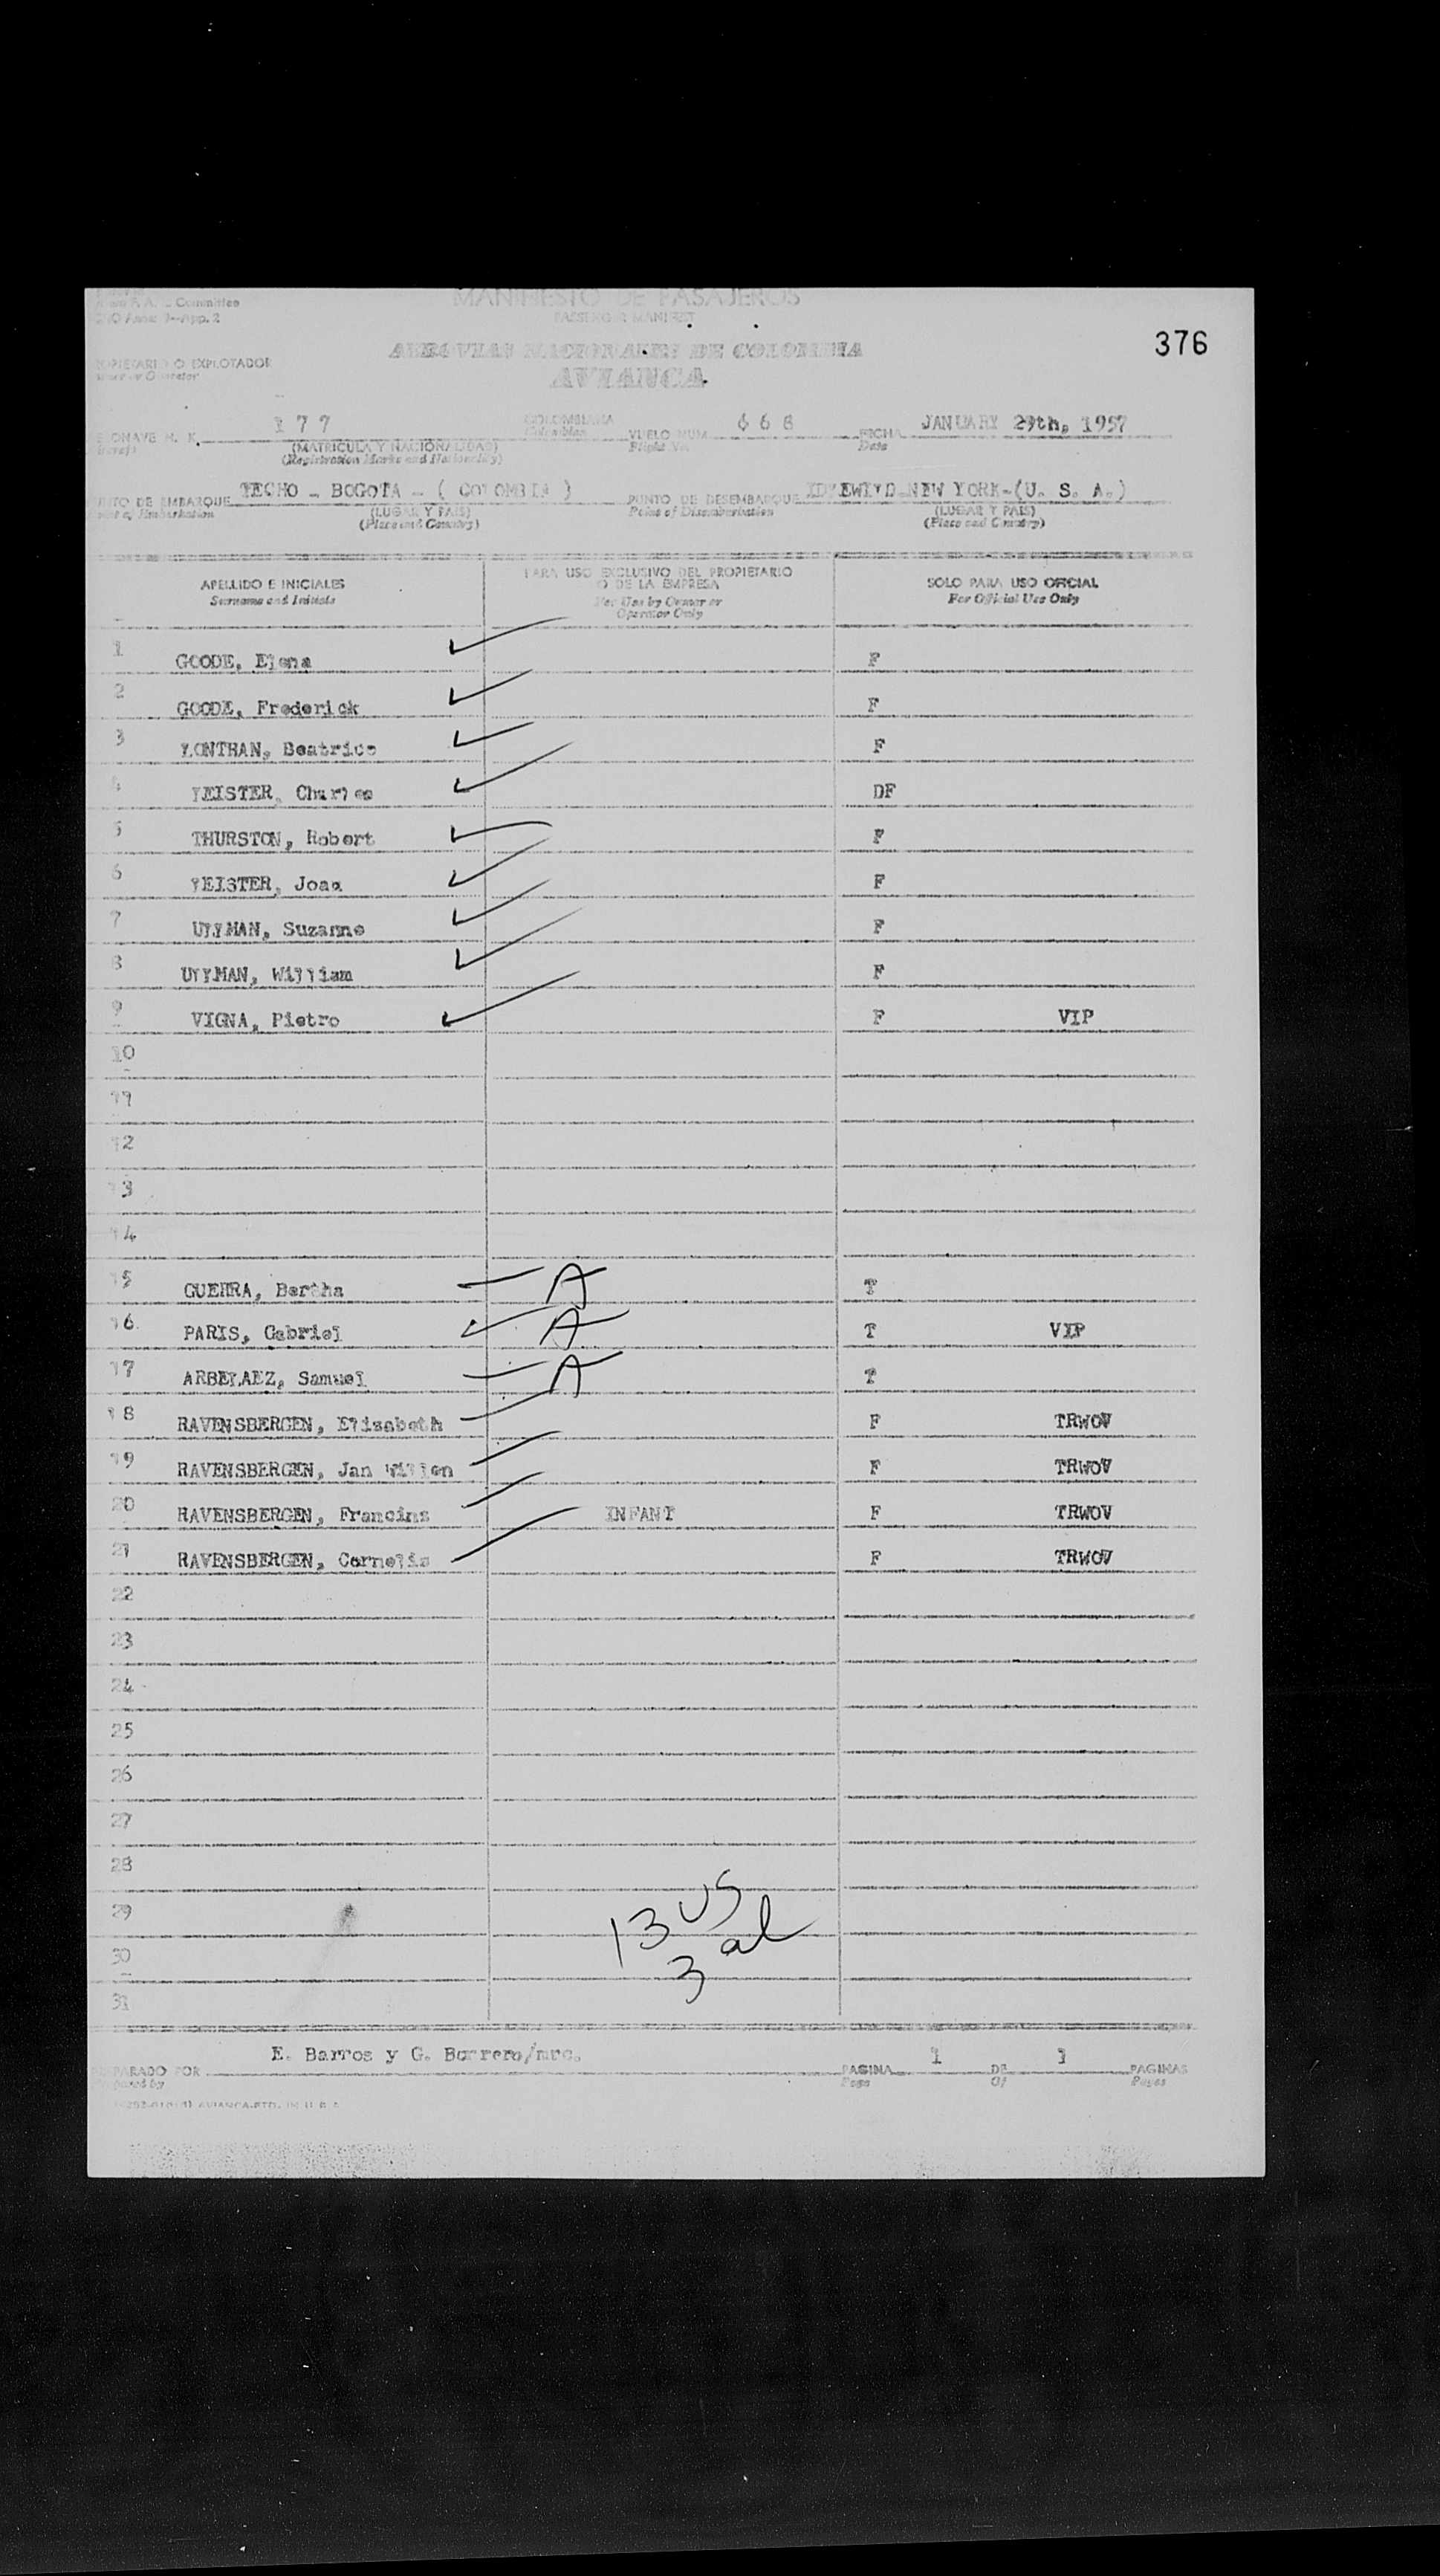 Committee
App. 2
MANIFIESTO DE PASAJEROS
PASSENGER MANIFEST
376
AEROVIAS NACIONALES DE COLOMBIA
AVIANCA
O EXPLOTADOR
Operator
177 COLOMBIANA 668 JANUARY 29th, 1957
H. K. Colombian VUELO NUM. FECHA
(MATRICULA Y NACIONALIDAD) Flight No. Date
(Registration Marks and Nationality)
TECHO - BOGOTA - ( COLOMBIA ) NEW YORK-(U. S. A.)
DE EMBARQUE PUNTO DE DESEMBARQUE
Embarkation (LUGAR Y PAIS) Point of Disembarkation (LUGAR Y PAIS)
(Place and Country) (Place and Country)
APELLIDO E INICIALES PARA USO EXCLUSIVO DEL PROPIETARIO SOLO PARA USO OFICIAL
Surname and Initials O DE LA EMPRESA For Official Use Only
For Use by Owner or
Operator Only
1 GOODE, Elena F
2 GOODE, Frederick F
3 Beatrice F
4 Charles DF
5 THURSTON, Robert F
6 Joan F
7 ULLMAN, Suzanne F
8 ULLMAN, William F
9 VIGNA, Pietro F VIP
10
11
12
13
14
15 GUERRA, Bertha A T
16 PARIS, Gabriel A T VIP
17 ARBELAEZ, Samuel A T
18 RAVENSBERGEN, Elizabeth F TRWOV
19 RAVENSBERGEN, Jan Willen F TRWOV
20 RAVENSBERGEN, Francins INFANT F TRWOV
21 RAVENSBERGEN, Cornelis F TRWOV
22
23
24
25
26
27
28
29 13 US
30 3 al
31
E. Barros y G. Borrero/mrc. 1 1
PARADO POR PAGINA DE PAGINAS
Prepared by Page Of Pages